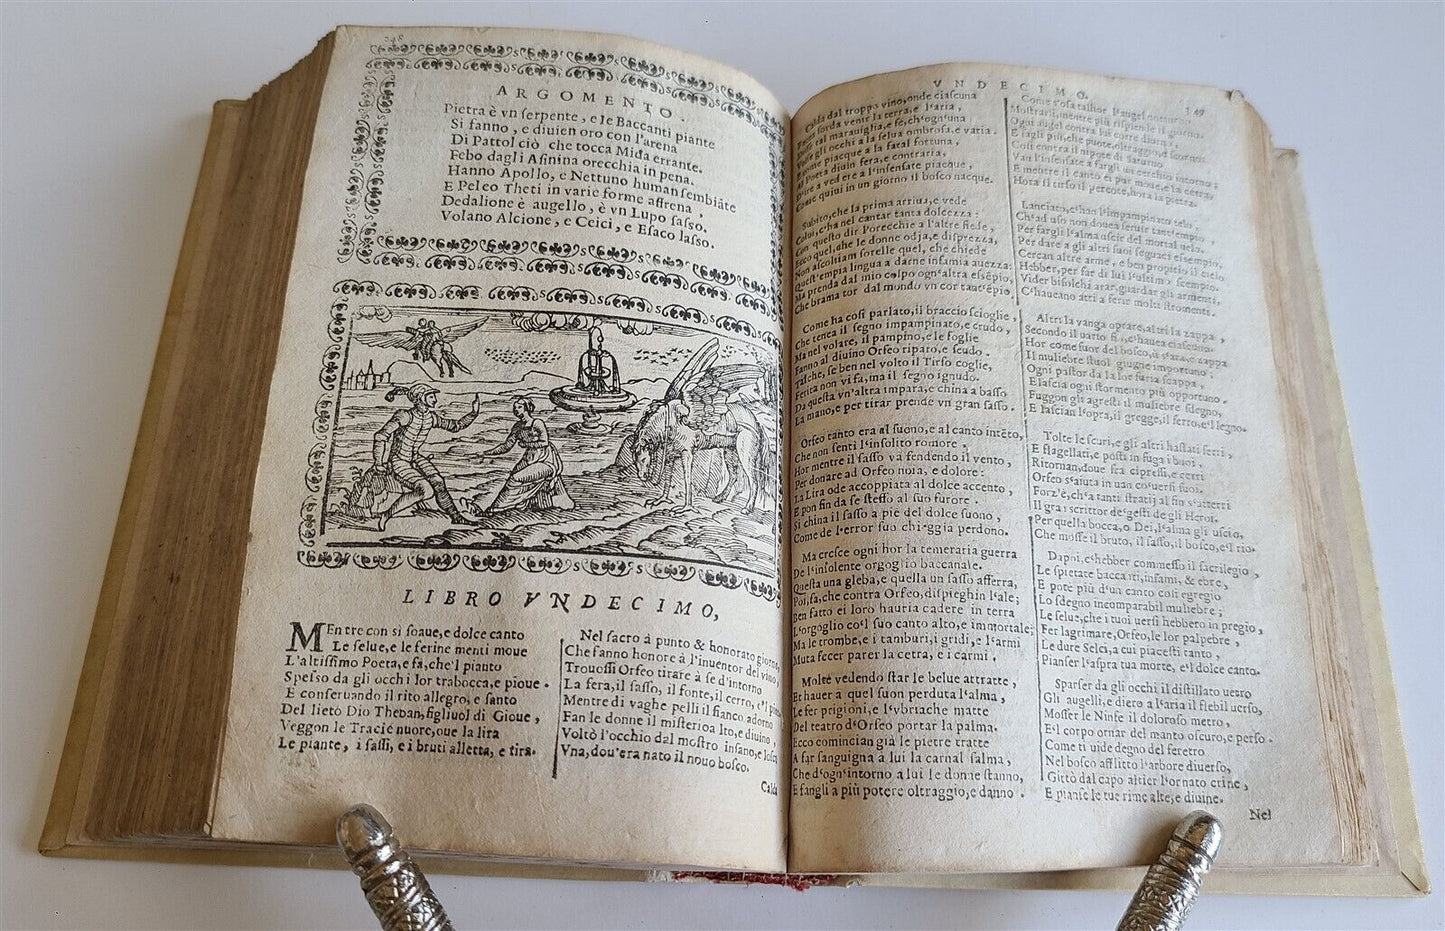 248
ARGOMENTO.
Pietra è vn serpente, e le Baccanti piante
Si fanno, e diuien oro con l'arena
Di Pattol ciò che tocca Mida errante.
Febo dagli Asinina orecchia in pena.
Hanno Apollo, e Nettuno human sembiãte
E Peleo Theti in varie forme affrena,
Dedalione è augello, è vn Lupo sasso.
Volano Alcione, e Ceici, e Esaco lasso.
LIBRO VNDECIMO,
MEntre con sì soaue, e dolce canto
Le selue, e le ferine menti moue
L'altissimo Poeta, e fà, che'l pianto
Spesso da gli occhi lor trabocca, e pioue.
E conseruando il rito allegro, e santo
Del lietò Dio Theban, figliuol di Gioue,
Veggon le Tracie nuore, oue la lira
Le piante, i sassi, e i bruti alletta, e tira.
Nel sacro à punto & honorato giorno,
Che fanno honore à l'inuentor del vino,
Trouossi Orfeo tirare à se d'intorno
La fera, il sasso, il fonte, il cerro, e'l
Mentre di vaghe pelli il fianco adorno
Fan le donne il misterio alto, e diuino,
Voltò l'occhio dal mostro insano, e
Vna, dou'era nato il nouo bosco.
Calda
VNDECIMO.
249
Calda dal troppo vino, onde ciascuna
sorda venir la terra, e l'aria,
tal marauiglia, e fè, ch'ogn'una
gli occhi a la selua ombrosa, e varia.
piacque a la fatal fortuna,
Poeta diuin fera, e contraria,
a vedere a l'insensate piacque,
Come quiui in un giorno il bosco nacque.
Subito, che la prima arriua, e vede
Colui, c'ha nel cantar tanta dolcezza:
Con questo dir l'orecchie a l'altre fiede,
Ecco quel, che le donne odia, e disprezza,
Non ascoltiam sorelle quel, che chiede
Quest'empia lingua a darne infamia auezza:
Ma prenda dal mio colpo ogn'altra essẽpio,
Che brama tor dal mondo vn cor tant'ẽpio.
Come ha così parlato, il braccio scioglie,
Che tenea il segno impampinato, e crudo,
Ma nel volare, il pampino, e le foglie
Fanno al diuino Orfeo riparo, e scudo.
Talche, se ben nel volto il Tirso coglie,
Ferita non vi fa, ma il segno ignudo.
Da questa vn'altra impara, e china a basso
La mano, e per tirar prende vn gran sasso.
Orfeo tanto era al suono, e al canto intẽto,
Che non senti l'insolito romore,
Hor mentre il sasso va fendendo il vento,
Per donare ad Orfeo noia, e dolore:
La Lira ode accoppiata al dolce accento,
E pon fin da se stesso al suo furore.
Si china il sasso a piè del dolce suono,
Come de l'error suo chieggia perdono.
Ma cresce ogni hor la temeraria guerra
De l'insolente orgoglio baccanale.
Questa una gleba, e quella un sasso afferra,
Poi, fa, che contra Orfeo, dispieghin l'ale;
Ben fatto ei loro hauria cadere in terra
L'orgoglio co'l suo canto alto, e immortale;
Ma le trombe, e i tamburi, i gridi, e l'armi
Muta fecer parer la cetra, e i carmi.
Molte vedendo star le belue attratte,
Et hauer a quel suon perduta l'alma,
Le fer prigioni, e l'vbriache matte
Del teatro d'Orfeo portar la palma.
Ecco comincian già le pietre tratte
A far sanguigna a lui la carnal salma,
Che d'ogn'intorno a lui le donne stanno,
E fangli a più potere oltraggio, e danno.
Come s'osa talhor l'augel notturno
Mostrarsi, mentre più risplende il giorno.
Ogni augel contra lui corre diurno,
E fagli più, che puote, oltraggio, e scorno.
Così contra il nipote di Saturno
Van l'insensate a fargli un cerchio intorno;
E mentre il canto ei pur moue, e la cetra
Hora il tirso il percote, hora la pietra.
Lanciato, e'han l'impampinato telo,
Ch'ad uso non douea seruir tant'empio,
Per fargli l'alma uscir del mortal uelo.
Per dare a gli altri suoi seguaci essempio,
Cercan altre arme, e ben propitio il cielo,
Hebber, per far di lui l'ultimo scempio.
Vider bifolchi arar, guardar gli armenti,
C'haueano atti a ferir molti stromenti.
Altri la vanga oprare, altri la zappa,
Secondo il uario fin, e'hauea ciascuno.
Hor come fuor del bosco, il uarco zappa
Il muliebre stuol giunge importuno.
Ogni pastor da la lor furia scappa,
E lascia ogni stormento più opportuno.
Fuggon gli agresti il muliebre sdegno,
E lascian l'opra, il gregge, il ferro, e'l legno.
Tolte le scuri, e gli altri hastati ferri,
E flagellati, e posti in fuga i buoi.
Ritornan, doue fra cipressi, e cerri
Orfeo s'aiuta in uan co'uersi suoi.
Forz'è, ch'a tanti stratij al fin s'atterri
Il gran scrittor de'gesti de gli Heroi.
Per quella bocca, o Dei, l'alma gli uscio,
Che mosse il bruto, il sasso, il bosco, e'l rio.
Dapoi, e'hebber commesso il sacrilegio,
Le spietate baccanti, infami, & ebre,
E pote più d'un canto così egregio
Lo sdegno incomparabil muliebre;
Le selue, che i tuoi uersi hebbero in pregio,
Fer lagrimare, Orfeo, le lor palpebre,
Le dure Selci, a cui piacesti tanto,
Pianser l'aspra tua morte, e'l dolce canto.
Sparser da gli occhi il distillato uetro
Gli augelli, e diero a l'aria il flebil uerso,
Mosser le Ninfe il doloroso metro,
E'l corpo ornar del manto oscuro, e perso.
Come ti uide degno del feretro
Nel bosco afflitto l'arbore diuerso,
Gittò dal capo altier l'ornato crine,
E pianse le tue rime alte, e diuine.
Nel